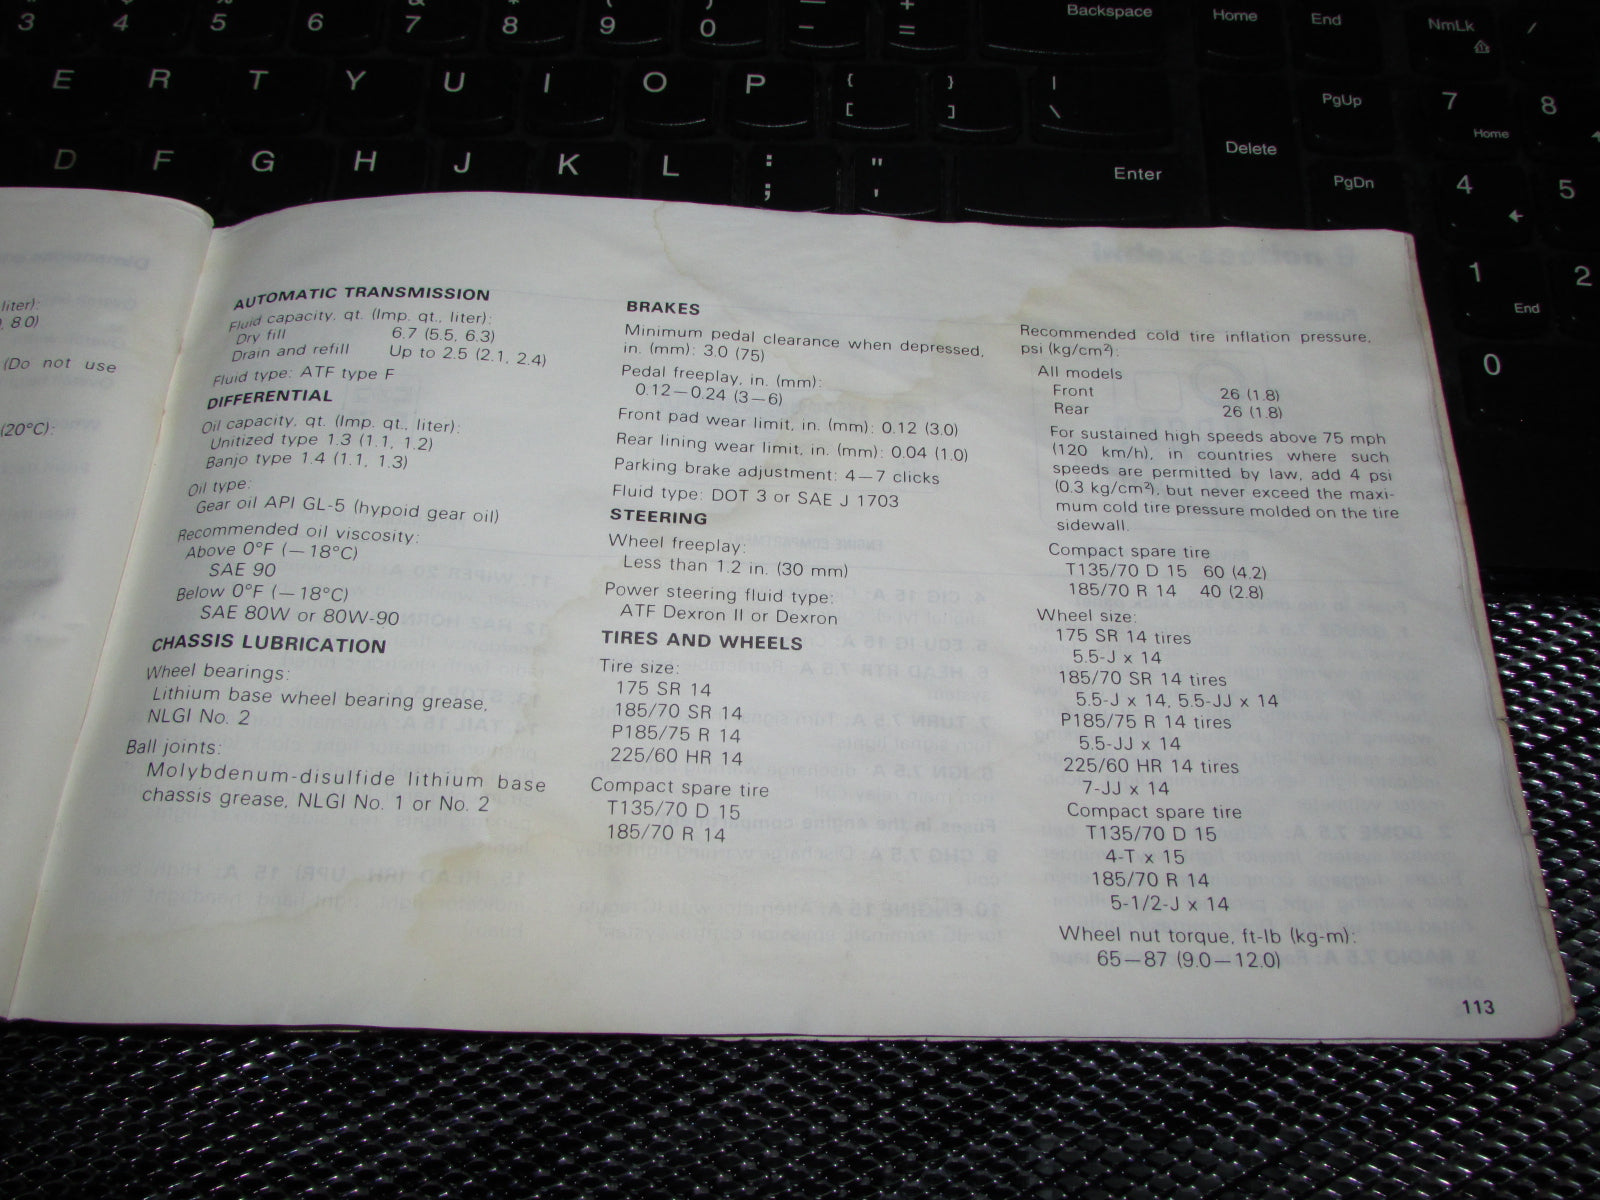 3 4 % 5 6 & 7 * 8 ( 9 ) 0 — - + = Backspace Home End NmLk /
E R T Y U I O P { [ } ] | \ PgUp 7 Home 8
D F G H J K L : ; " ' Enter Delete PgDn 4 5
1 End 2
0
liter):
8.0)
(Do not use
(20°C):
AUTOMATIC TRANSMISSION
Fluid capacity, qt. (Imp. qt., liter):
Dry fill 6.7 (5.5, 6.3)
Drain and refill Up to 2.5 (2.1, 2.4)
Fluid type: ATF type F
DIFFERENTIAL
Oil capacity, qt. (Imp. qt., liter):
Unitized type 1.3 (1.1, 1.2)
Banjo type 1.4 (1.1, 1.3)
Oil type:
Gear oil API GL-5 (hypoid gear oil)
Recommended oil viscosity:
Above 0°F (—18°C)
SAE 90
Below 0°F (—18°C)
SAE 80W or 80W-90
CHASSIS LUBRICATION
Wheel bearings:
Lithium base wheel bearing grease,
NLGI No. 2
Ball joints:
Molybdenum-disulfide lithium base
chassis grease, NLGI No. 1 or No. 2
BRAKES
Minimum pedal clearance when depressed,
in. (mm): 3.0 (75)
Pedal freeplay, in. (mm):
0.12—0.24 (3—6)
Front pad wear limit, in. (mm): 0.12 (3.0)
Rear lining wear limit, in. (mm): 0.04 (1.0)
Parking brake adjustment: 4—7 clicks
Fluid type: DOT 3 or SAE J 1703
STEERING
Wheel freeplay:
Less than 1.2 in. (30 mm)
Power steering fluid type:
ATF Dexron II or Dexron
TIRES AND WHEELS
Tire size:
175 SR 14
185/70 SR 14
P185/75 R 14
225/60 HR 14
Compact spare tire
T135/70 D 15
185/70 R 14
Recommended cold tire inflation pressure,
psi (kg/cm²):
All models
Front 26 (1.8)
Rear 26 (1.8)
For sustained high speeds above 75 mph
(120 km/h), in countries where such
speeds are permitted by law, add 4 psi
(0.3 kg/cm²), but never exceed the maxi-
mum cold tire pressure molded on the tire
sidewall.
Compact spare tire
T135/70 D 15 60 (4.2)
185/70 R 14 40 (2.8)
Wheel size:
175 SR 14 tires
5.5-J x 14
185/70 SR 14 tires
5.5-J x 14, 5.5-JJ x 14
P185/75 R 14 tires
5.5-JJ x 14
225/60 HR 14 tires
7-JJ x 14
Compact spare tire
T135/70 D 15
4-T x 15
185/70 R 14
5-1/2-J x 14
Wheel nut torque, ft-lb (kg-m):
65—87 (9.0—12.0)
113